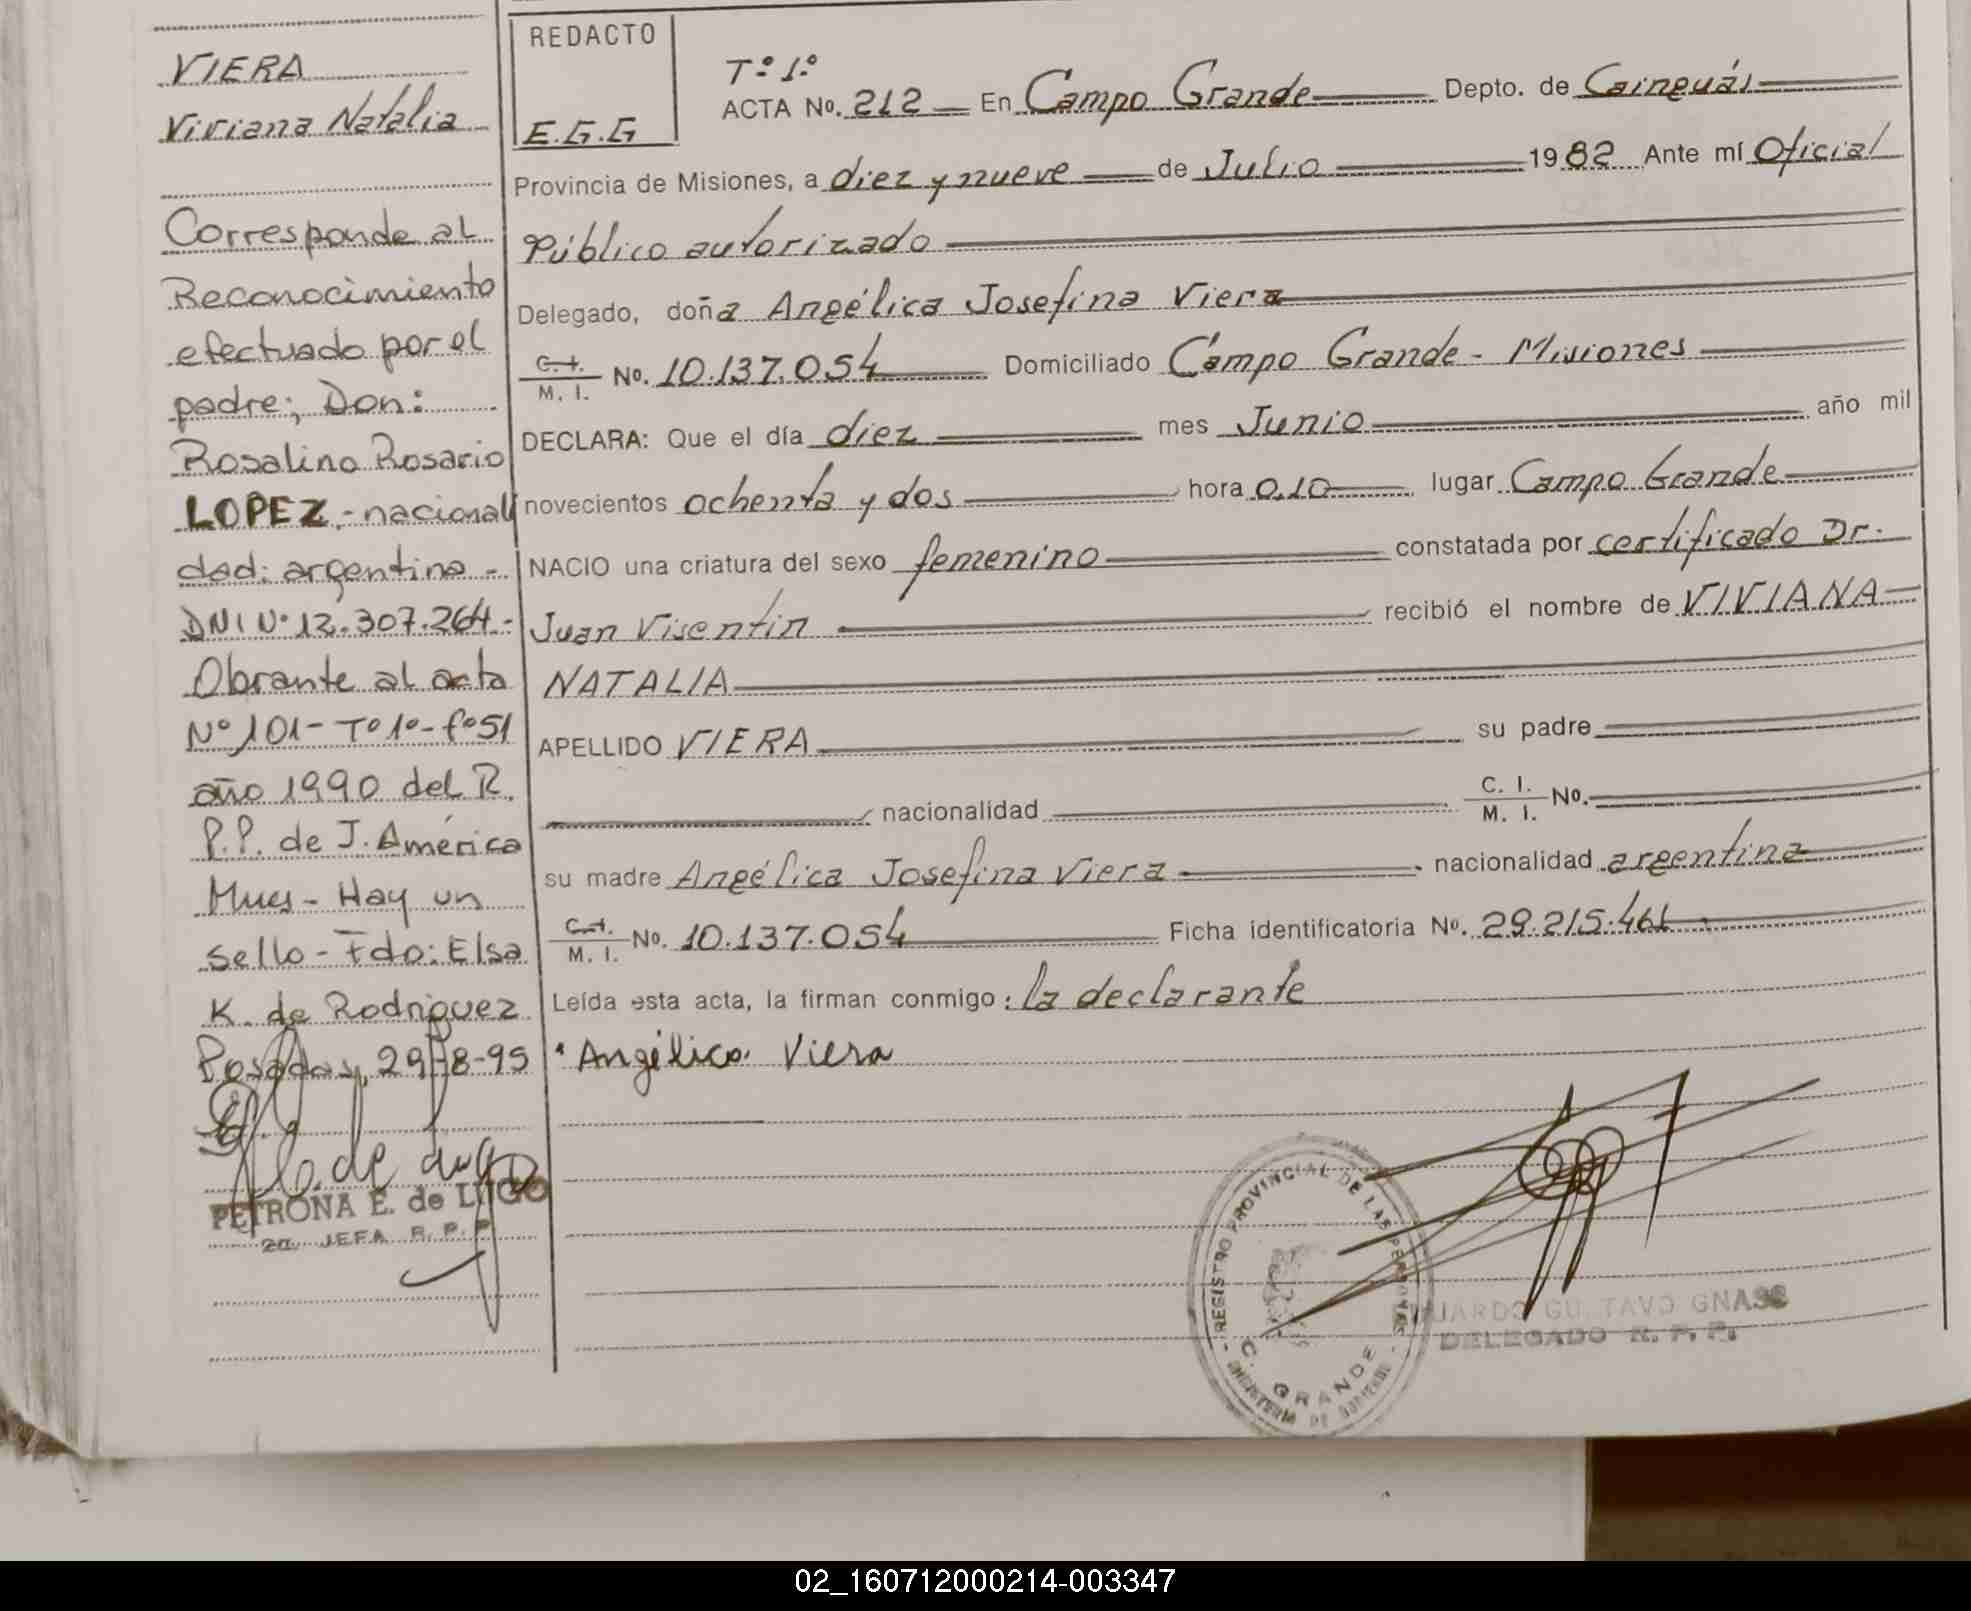 VIERA
Viviana Natalia
Corresponde al
Reconocimiento
efectuado por el
padre; Don:
Rosalino Rosario
LOPEZ.- nacionali
dad: argentino -
DNI Nº 12.307.264.-
Obrante al acta
Nº 101- Tº 1º- fº 51
año 1990 del R.
P.P. de J. América
Mnes- Hay un
sello- Fdo: Elsa
K. de Rodriguez
Posadas, 29-8-95
PETRONA E. de LUGO
2a. JEFA R. P. P.
REDACTO
E.G.G
Tº 1º
ACTA No. 212 En Campo Grande Depto. de Cainguás
Provincia de Misiones, a diez y nueve de Julio 1982 Ante mí Oficial
Público autorizado
Delegado, doña Angélica Josefina Viera
C. I.
M. I. No. 10.137.054 Domiciliado Campo Grande - Misiones
DECLARA: Que el día diez mes Junio año mil
novecientos ochenta y dos hora 0,10 lugar Campo Grande
NACIO una criatura del sexo femenino constatada por certificado Dr.
Juan Visentin recibió el nombre de VIVIANA
NATALIA
APELLIDO VIERA su padre
nacionalidad C. I.
M. I. No.
su madre Angélica Josefina Viera nacionalidad argentina
C. I.
M. I. No. 10.137.054 Ficha identificatoria No. 29.215.461
Leída esta acta, la firman conmigo: la declarante
Angélica Viera
REGISTRO PROVINCIAL DE LAS PERSONAS
C. GRANDE
MINISTERIO DE GOBIERNO
EDUARDO GUSTAVO GNASS
DELEGADO R. P. P.
02_160712000214-003347